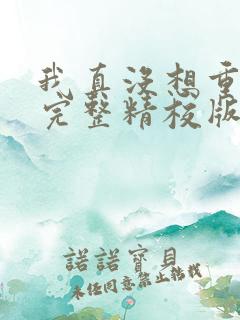 我真没想重
完整精校版
諾諾寶貝
未经同意禁止转载